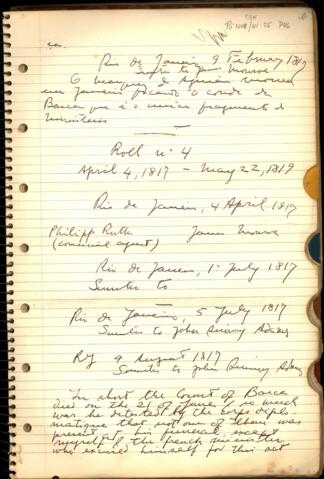 Rio de Janeiro 9 February 1817
Sumter to James Monroe
O marquez de Aguiar morreu
em Janeiro ficando o conde da
Barca que é o unico fragmento do
Ministerio
Roll nº 4
April 4, 1817 - May 22, 1819
Rio de Janeiro, 4 April 1817
Philipp Rutte James Monroe
(commercial agent)
Rio de Janeiro, 1: July 1817
Sumter to
Rio de Janeiro, 5 July 1817
Sumter to John Quincy Adams
RJ 9 August 1817
Sumter to John Quincy Adams
In short the Count of Barca
died on the 21 of June & so much
was he detested by the corps diplo-
matique that not one of them was
present at his funeral except
myself & the french minister
who excused himself for this act